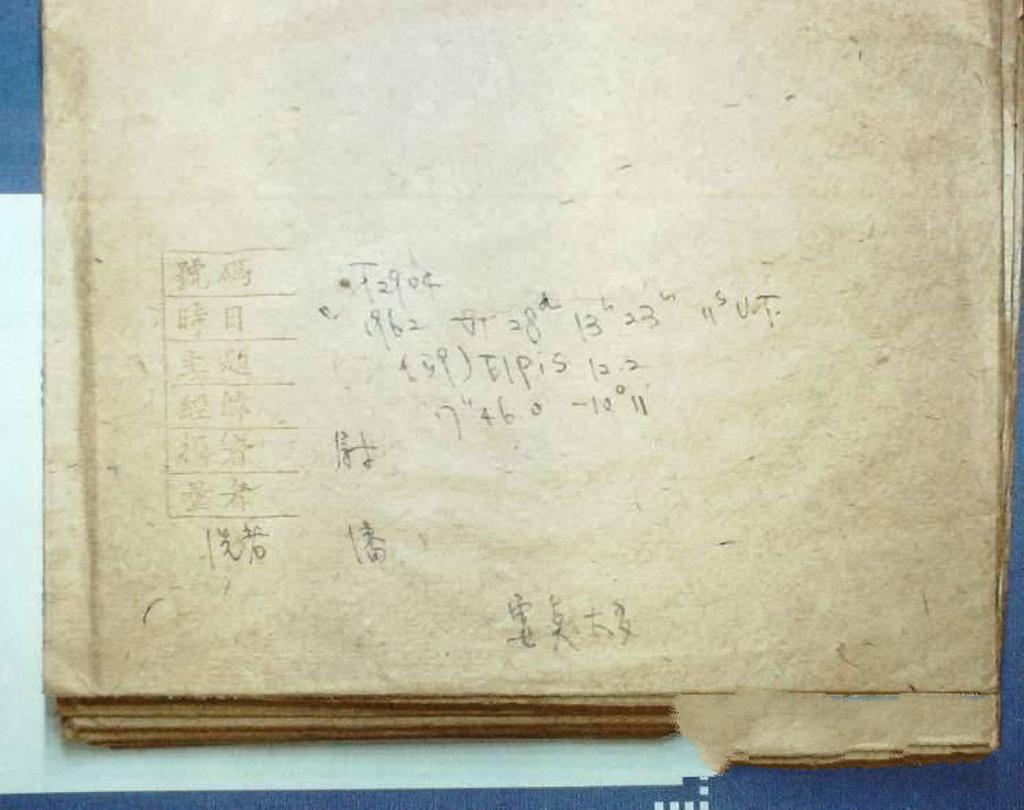 號碼 T2904
時日 1962 28d 13h 23m 11s U.T.
主題 (59) Elpis 12.2
經緯 17h46.0 -10°11'
攝者
量者
洗者 潘
雲真太多